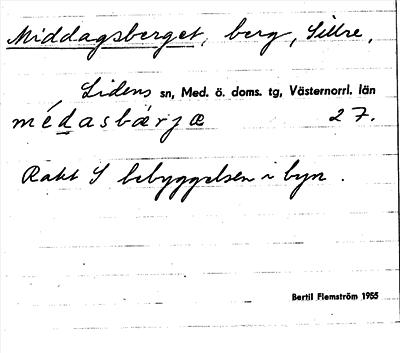 Middagsberget, berg, Sillre.
Lidens sn, Med. ö. doms. tg, Västernorrl. län
médasbàrjæ 27.
Rakt S bebyggelsen i byn.
Bertil Flemström 1955